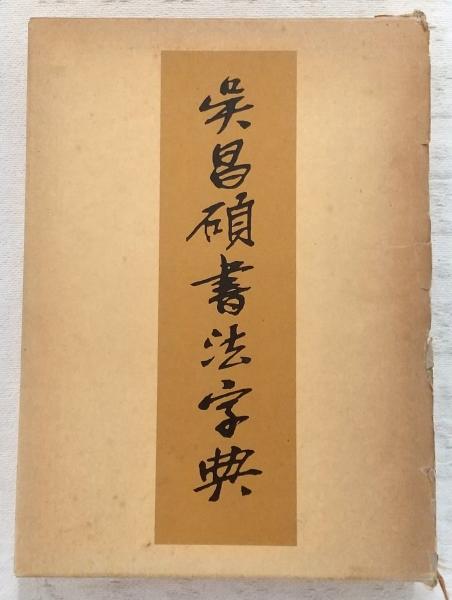 吴昌碩書法字典